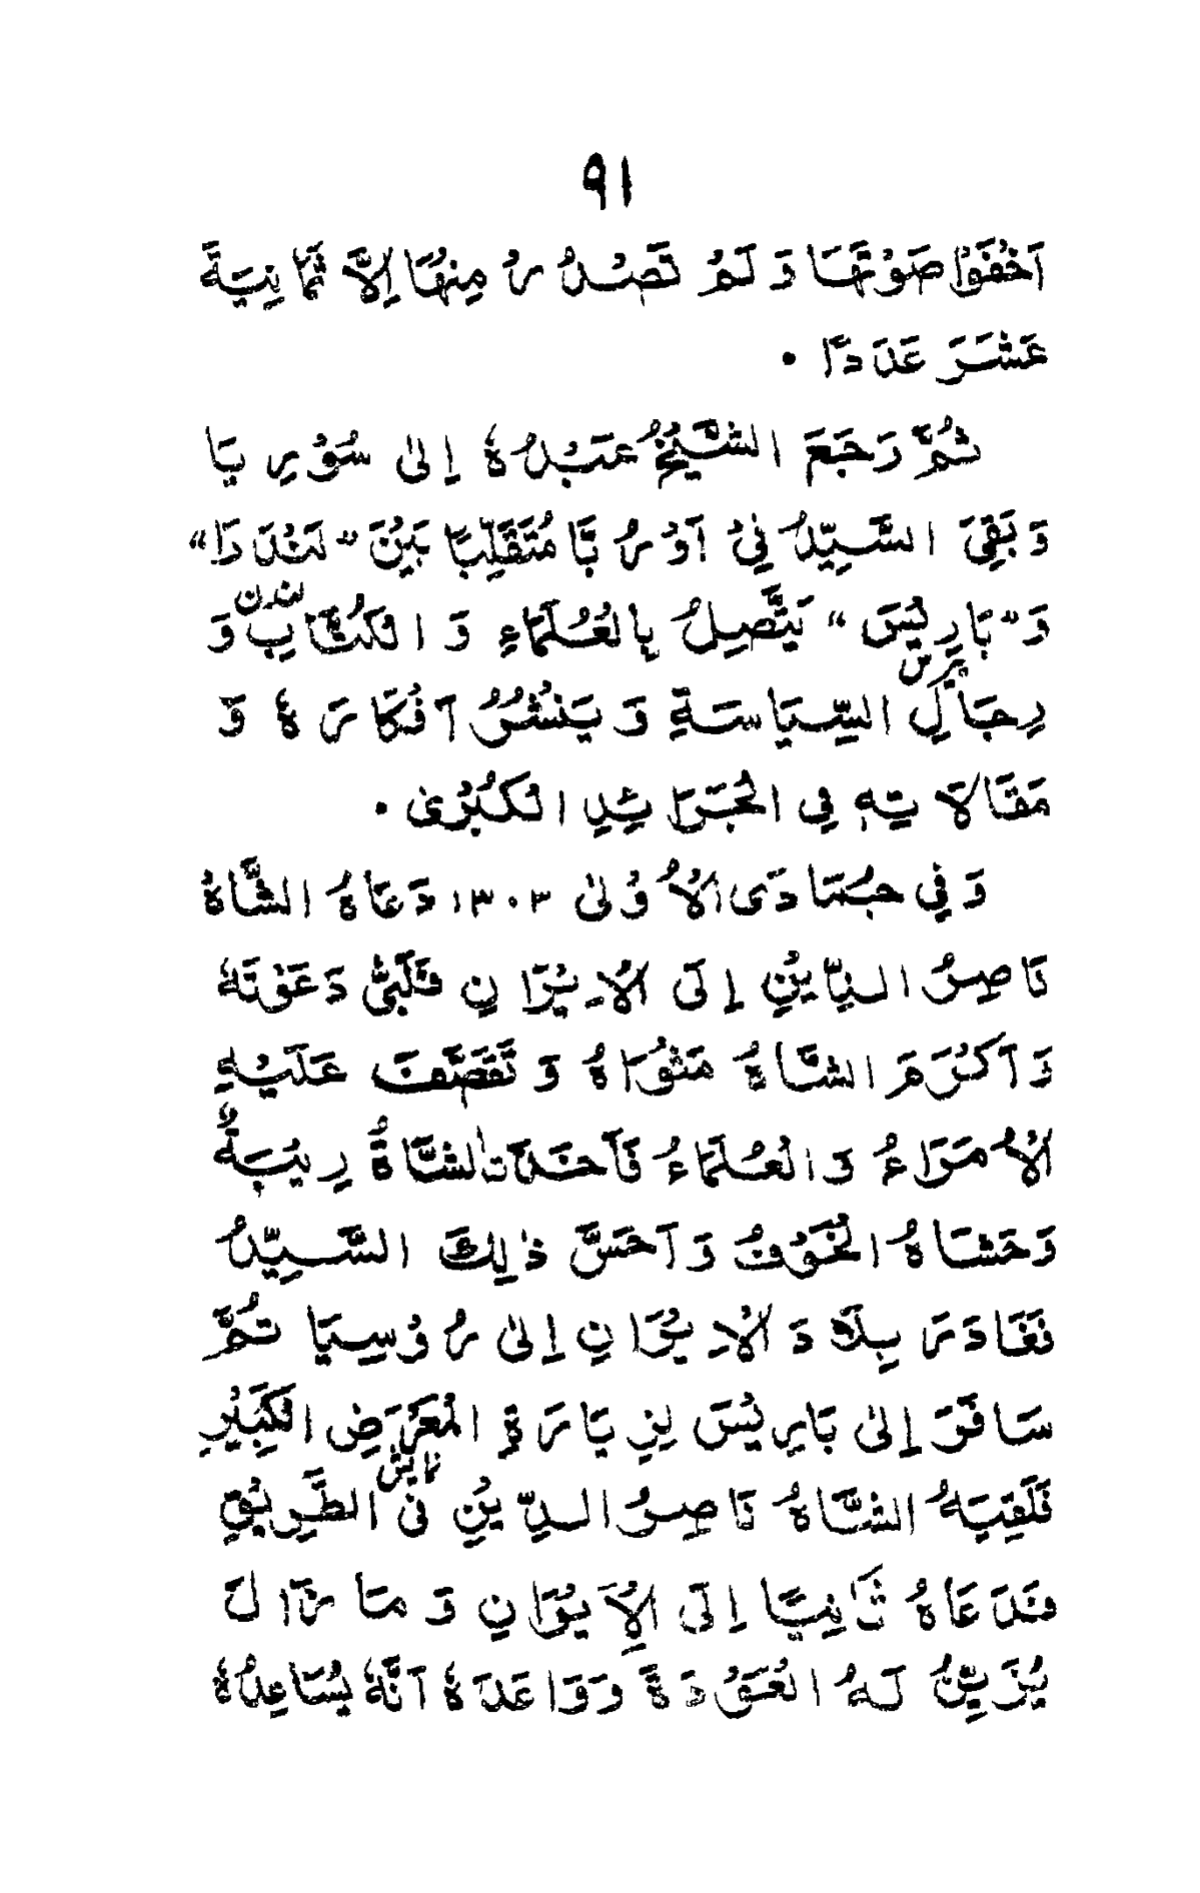 ٩١
اَخْفَوْا صَوْتَهَا وَلَمْ تَصْدُرْ مِنْهَا اِلَّا ثَمَانِيَةَ
عَشَرَ عَدَدًا ۰
ثُمَّ رَجَعَ الشَّيْخُ عَبْدُهٗ اِلىٰ سُوْرِيَا
وَبَقِيَ السَّيِّدُ فِيْ اَوْرُبَّا مُتَقَلِّبًا بَيْنَ "لَنْدَرَا"
وَ"بَارِيْسَ" يَتَّصِلُ بِالْعُلَمَاءِ وَالْكُتَّابِ وَ
لندن
پیرس
رِجَالِ السِّيَاسَةِ وَيَنْشُرُ اَفْكَارَهٗ وَ
مَقَالَاتِهٖ فِي الْجَرَائِدِ الْكُبْرىٰ ۰
وَفِي جُمَادَى الْاُوْلىٰ ١٣٠٣ دَعَاهُ الشَّاهُ
نَاصِرُ الدِّيْنِ اِلَى الْاِيْرَانِ فَلَبّٰى دَعْوَتَهٗ
وَاَكْرَمَ الشَّاهُ مَثْوَاهُ وَتَقَصَّفَ عَلَيْهِ
الْاُمَرَاءُ وَالْعُلَمَاءُ فَاَخَذَتِ الشَّاهَ رِيْبَةٌ
وَحَشَاهُ الْخَوْفُ وَاَحَسَّ ذٰلِكَ السَّيِّدُ
فَغَادَرَ بِلَادَ الْاِيْرَانِ اِلىٰ رُوْسِيَا ثُمَّ
سَافَرَ اِلىٰ بَارِيْسَ لِزِيَارَةِ الْمَعْرَضِ الْكَبِيْرِ
نمایش
فَلَقِيَهُ الشَّاهُ نَاصِرُ الدِّيْنِ فِي الطَّرِيْقِ
فَدَعَاهُ ثَانِيًا اِلَى الْاِيْرَانِ وَمَا زَالَ
يُزَيِّنُ لَهُ الْعَوْدَةَ وَوَاعَدَهٗ اَنَّهٗ يُسَاعِدُهٗ